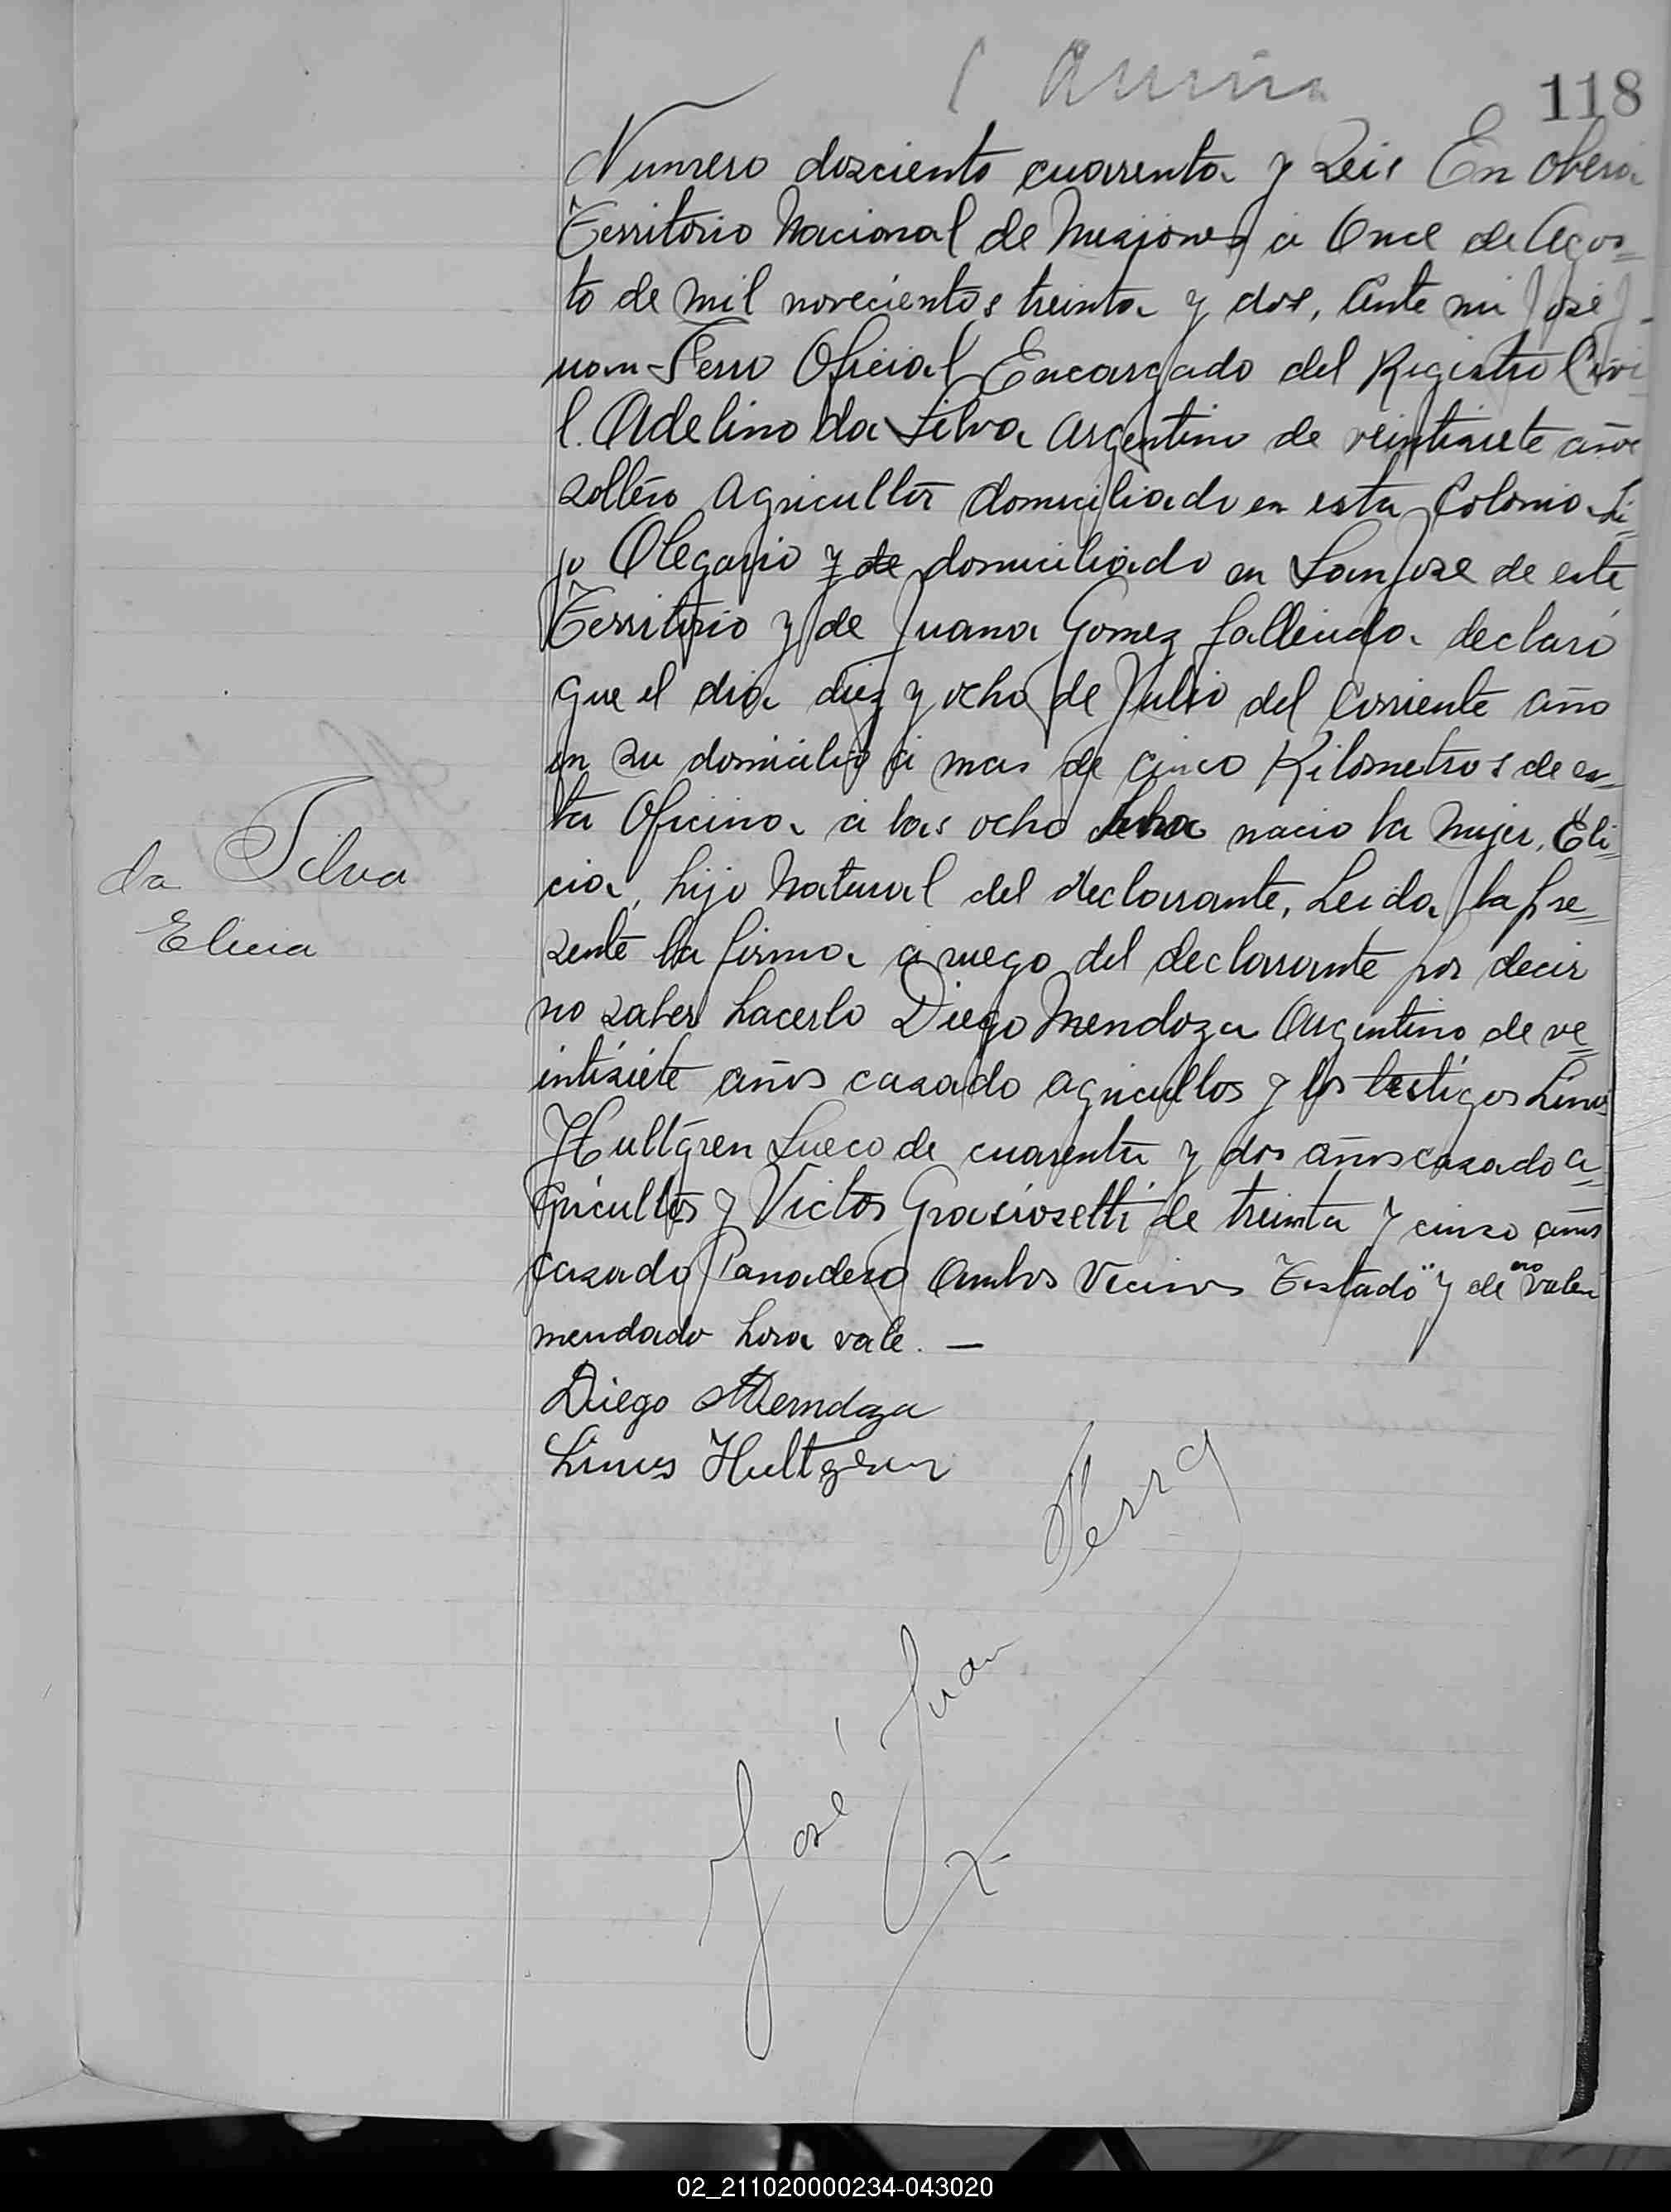 118
Numero dosciento cuarrenta y Seis En Oberá
Territorio Nacional de Misiones a Once de Agos=
to de mil novecientos treinta y dos, Ante mi José J-
uan Ferro Oficial Encargado del Registro Civi
l. Adelino da Silva Argentino de veintisiete años
soltero Agricultor domiciliado en esta Colonia hi=
jo Olegario y de domiciliado en San Jose de este
Territorio y de Juana Gomez fallecida declaró
que el dia diez y ocho de Julio del Corriente año
en su domicilio a mas de cinco Kilometros de es=
ta Oficina a las ocho hora nacio la Mujer, Eli=
cia, hija Natural del declarrante, Leida la pre=
sente la firma a ruego del declarrante por decir
no saber hacerlo Diego Mendoza Argentino de ve=
intisiete años casado agricultor y los testigos Linus
Hultgren Sueco de cuarenta y dos años casado a=
gricultor y Victor Grasiosetti de treinta y cinco años
casado Panadero Ambos Vecinos Testado "y de no vale
mendado hora vale. —
da Silva
Elicia
Diego Mendoza
Linus Hultgren
José Juan Ferro
02_211020000234-043020